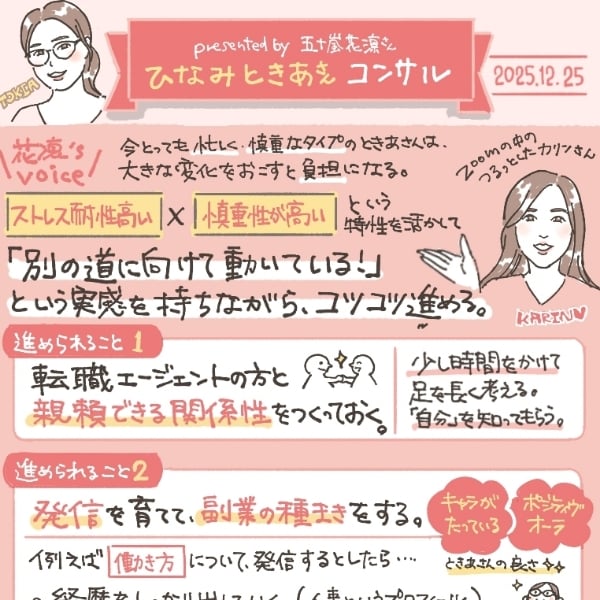 presented by 五十嵐花凛さん
ひなみときあき コンサル
2025.12.25
TOKIA
花凛's voice
今とっても忙しく、慎重なタイプのときあさんは、
大きな変化をおこすと負担になる。
Zoomの中の
つるっとしたカリンさん
ストレス耐性高い × 慎重性が高い という
特性を活かして
「別の道に向けて動いている!」
という実感を持ちながら、コツコツ進める。
KARIN♡
進められること 1
転職エージェントの方と
親頼できる関係性をつくっておく。
少し時間をかけて
足を長く考える。
「自分」を知ってもらう。
進められること 2
発信を育てて、副業の種まきをする。
キャラが
たっている
ポジティヴ
オーラ
ときあさんの良さ
例えば 働き方 について、発信するとしたら…